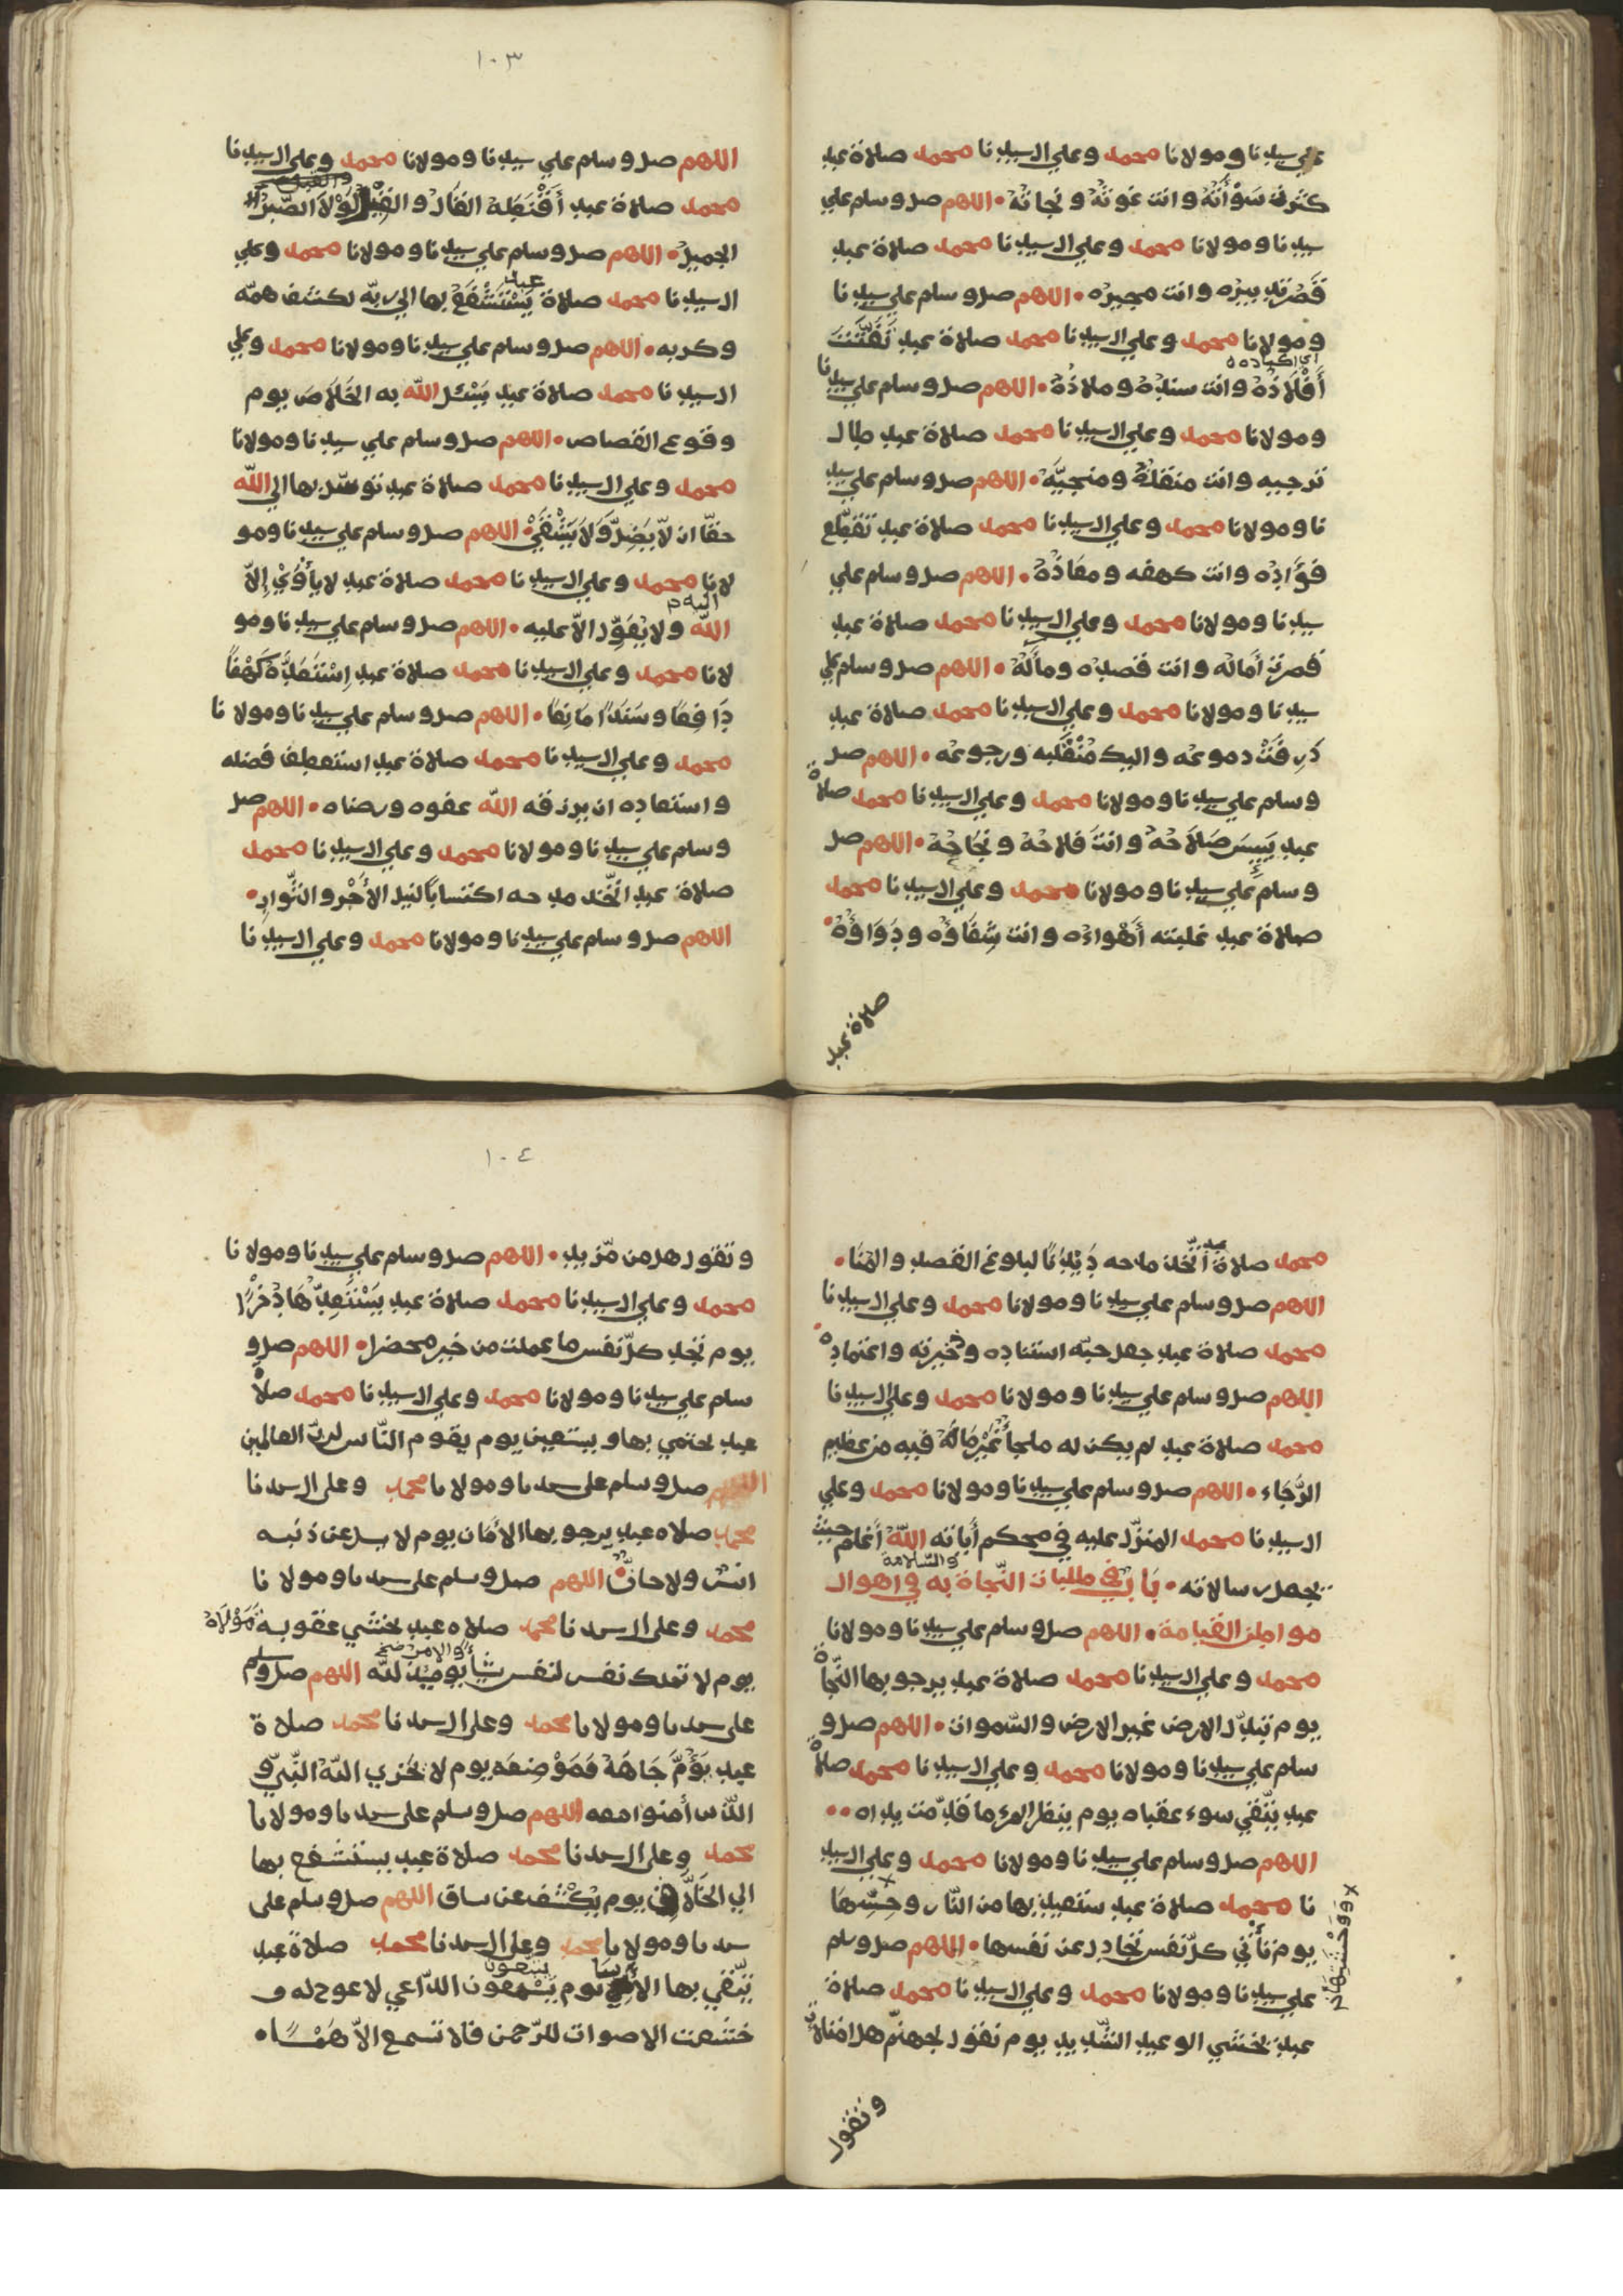 علي سيدنا ومولانا محمد وعلي ال سيدنا محمد صلاة عبد
كثرت سَوْأَتُهُ وانت غوثُهُ ونجاتُهُ • اللهم صل وسلم علي
سيدنا ومولانا محمد وعلي ال سيدنا محمد صلاة عبد
قَصُرَ تدبيرُه وانت مجيرُه • اللهم صل وسلم علي سيدنا
ومولانا محمد وعلي ال سيدنا محمد صلاة عبد تَفَتَّتَتْ
اي اكباده
أَفْلَاذُهُ وانت سندُهُ وملاذُهُ • اللهم صل وسلم علي سيدنا
ومولانا محمد وعلي ال سيدنا محمد صلاة عبد طال
ترجيه وانت منقذُهُ ومنجيَّهُ • اللهم صل وسلم علي سيد
نا ومولانا محمد وعلي ال سيدنا محمد صلاة عبد تقطّع
فؤَادُه وانت كهفه ومعَاذُهُ • اللهم صل وسلم علي
سيدنا ومولانا محمد وعلي ال سيدنا محمد صلاة عبد
قصرت أَمَاله وانت قصده ومأَلُهُ • اللهم صل وسلم علي
سيدنا ومولانا محمد وعلي ال سيدنا محمد صلاة عبد
ذَرِفَتْ دموعه واليك مُنْقَلَبه ورجوعه • اللهم صل
وسلم علي سيدنا ومولانا محمد وعلي ال سيدنا محمد صلاة
عبد يَبِسَ صَلَاحُهُ وانتَ فلاحُهُ ونجَاحُهُ • اللهم صل
وسلم علي سيدنا ومولانا محمد وعلي ال سيدنا محمد
صلاة عبد غلبته أَهْواءُه وانت شِفَاؤُه ودَوَاؤُهُ •
صلاة عبد
١٠٣
اللهم صل وسلم علي سيدنا ومولانا محمد وعلي ال سيدنا
محمد صلاة عبد أَقْنَطَهُ القَالُ والقِيْلُ لَوْلَا الصَّبْرُ
الجميلُ • اللهم صل وسلم علي سيدنا ومولانا محمد وعلي
عبد
ال سيدنا محمد صلاة يَسْتَشْفِعُ بها الي ربّه لكشف همّه
وكربه • اللهم صل وسلم علي سيدنا ومولانا محمد وعلي
ال سيدنا محمد صلاة عبد يَسْئَل اللّه به الخَلَاصَ يوم
وقوع القصاص • اللهم صل وسلم علي سيدنا ومولانا
محمد وعلي ال سيدنا محمد صلاة عبد توسّل بها الي اللّه
حقّا ان لّا يَضِلَّ وَلَا يَشْقَيْ • اللهم صل وسلم علي سيدنا ومو
لانا محمد وعلي ال سيدنا محمد صلاة عبد لا يأْوِيْ إِلّا
اليه
اللّه ولا يُعَوِّل الّا عليه • اللهم صل وسلم علي سيدنا ومو
لانا محمد وعلي ال سيدنا محمد صلاة عبد اِسْتَعَدَّهُ كَهْفًا
دَافِعًا وسَنَدًا مَانِعًا • اللهم صل وسلم علي سيدنا ومولانا
محمد وعلي ال سيدنا محمد صلاة عبد استعطف فضله
واستعاده ان يرزقه اللّه عفوه ورضاه • اللهم صل
وسلم علي سيدنا ومولانا محمد وعلي ال سيدنا محمد
صلاة عبد اتّخذ مدحه اكتسابًا لنيل الأَجْر والثّواب •
اللهم صل وسلم علي سيدنا ومولانا محمد وعلي ال سيدنا
عبد
محمد صلاة اتّخذ مدحه دَيْدَنًا لبلوغ القصد والمُنَا •
اللهم صل وسلم علي سيدنا ومولانا محمد وعلي ال سيدنا
محمد صلاة عبد جعل حبّه استناده وذخيرته واعتماده •
اللهم صل وسلم علي سيدنا ومولانا محمد وعلي ال سيدنا
محمد صلاة عبد لم يكن له ملجأٌ غَيْرُ مَالَهُ فيه من عظيم
الرَّجَاء • اللهم صل وسلم علي سيدنا ومولانا محمد وعلي
ال سيدنا محمد المنزّل عليه في محكم أياته اللّه أعلم حيث
والسّلامة
يجعل رسالاته • بَابٌ في طلبات النّجاة به في اهوال
مواطن القيامة • اللهم صل وسلم علي سيدنا ومولانا
محمد وعلي ال سيدنا محمد صلاة عبد يرجو بها النّجاة
يوم تبدّل الارض غير الارض والسّموات • اللهم صل و
سلم علي سيدنا ومولانا محمد وعلي ال سيدنا محمد صلاة
عبد يتّقي سوء عقباه يوم ينظر المرء ما قدّمت يداه ••
اللهم صل وسلم علي سيدنا ومولانا محمد وعلي ال سيد
نا محمد صلاة عبد ستعيذ بها من النّار وحِسِّهَا
ووَحْشَتِهَا
يوم تأْتي كلّ نفس تجادل عن نفسها • اللهم صل وسلم
علي سيدنا ومولانا محمد وعلي ال سيدنا محمد صلاة
عبد يخشي الوعيد الشّديد يوم نقول لجهنّم هل امتلأت
وتقول
١٠٤
وتقول هل من مّزيد • اللهم صل وسلم علي سيدنا ومولانا
محمد وعلي ال سيدنا محمد صلاة عبد يَسْتَعِدُّهَا ذُخْرًا
يوم تجد كلّ نفس ما عملت من خير محضرا • اللهم صل و
سلم علي سيدنا ومولانا محمد وعلي ال سيدنا محمد صلاة
عبد يحتمي بها ويستعين يوم يقوم النّاس لربّ العالمين
اللهم صل وسلم على سيدنا ومولانا محمد وعلى ال سيدنا
محمد صلاه عبد يرجو بها الأمان يوم لا يسئل عن ذنبه
انس ولا جانّ • اللهم صل وسلم على سيدنا ومولانا
محمد وعلى ال سيدنا محمد صلاه عبد يخشي عقوبة مَوْلَاهُ
والامر صح
يوم لا تملك نفس لنفس شيأ يومئذ للّه اللهم صل وسلم
على سيدنا ومولانا محمد وعلى ال سيدنا محمد صلاة
عبد يَؤُمُّ جَاهَهُ فَمَوْضِعَه يوم لا يخزي اللّه النّبيّ و
الذين أمنوا معه اللهم صل وسلم على سيدنا ومولانا
محمد وعلى ال سيدنا محمد صلاة عبد يستشفع بها
الي الخَلَّاقِ يوم يُكْشَف عن ساق اللهم صل وسلم على
سيدنا ومولانا محمد وعلى ال سيدنا محمد صلاة عبد
يتّبعون
يتّقي بها يوم يَسْمعون الدّاعي لا عوج له و
خشعت الاصوات للرّحمن فلا تسمع الّا هَمْسًا •